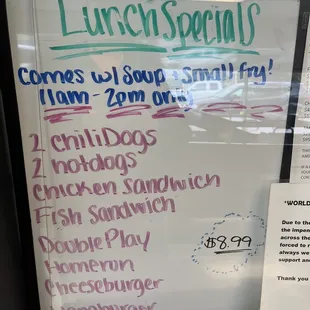 Lunch Specials
Comes w/ Soup + small fry!
11am - 2pm only
2 chiliDogs
2 hotdogs
chicken sandwich
Fish Sandwich
Double Play
Homerun
Cheeseburger
$8.99
"WORLD
Due to the
the impen
across the
forced to r
always we
support and
Thank you